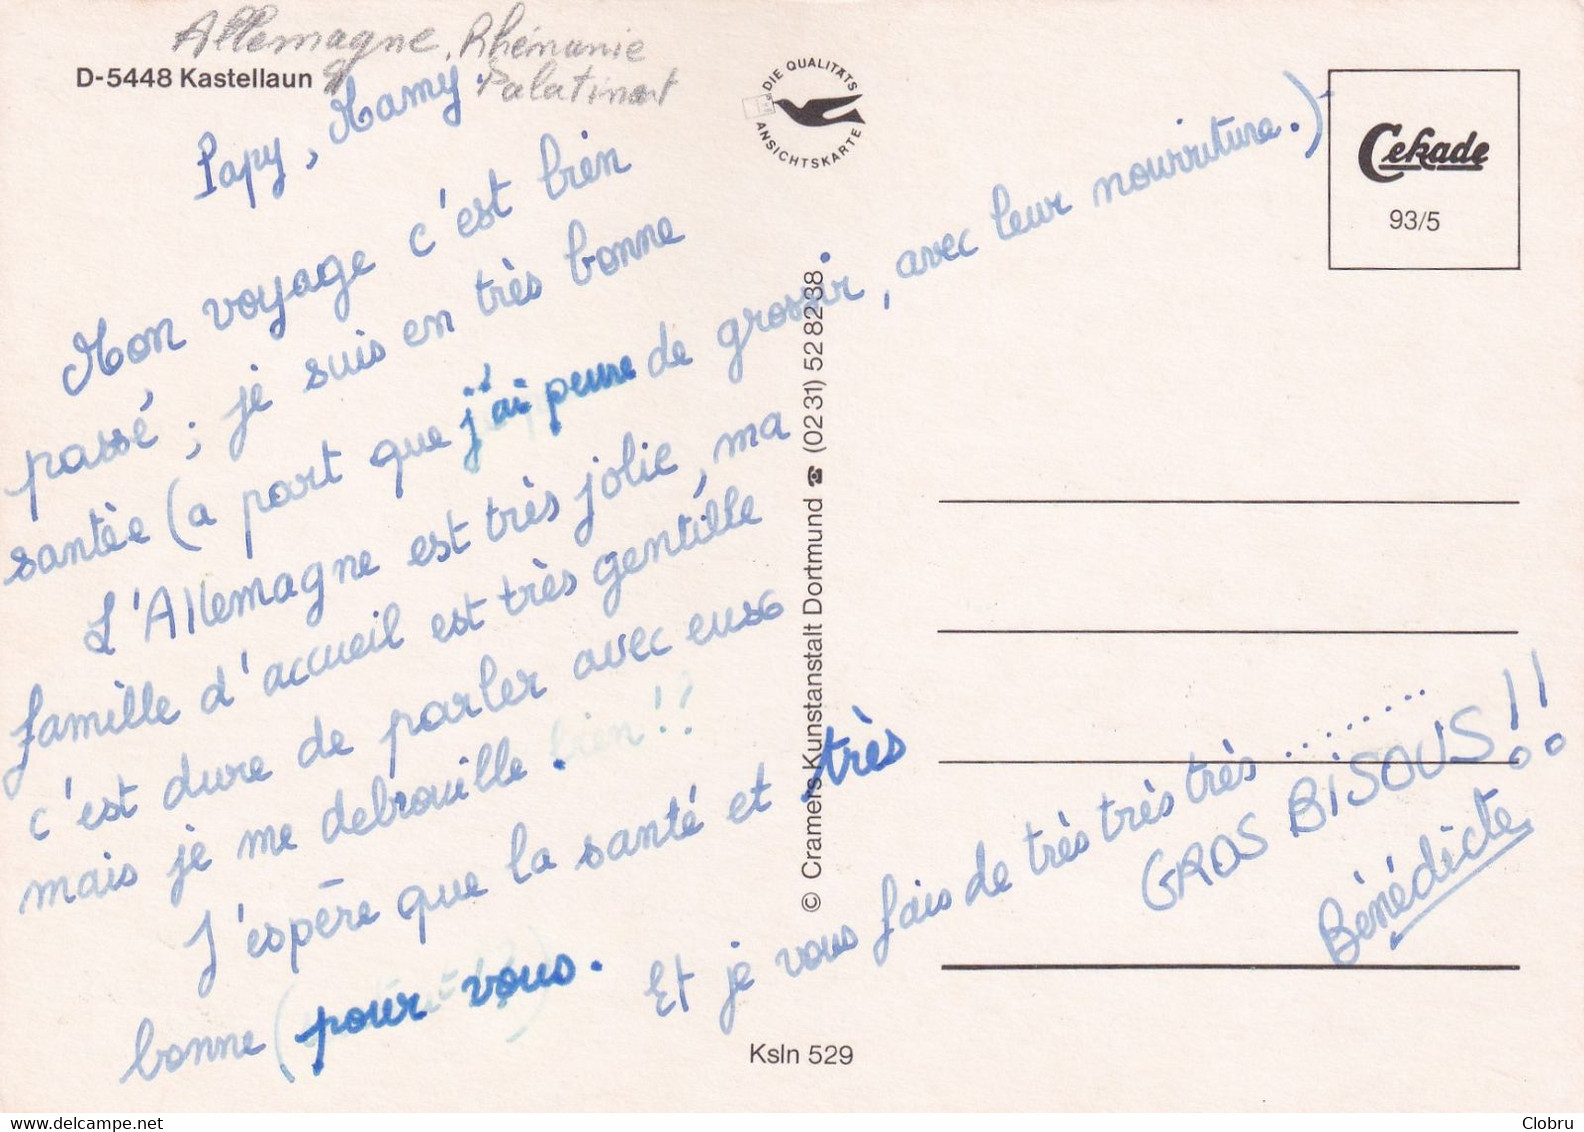 Allemagne, Rhénanie
Palatinat
D-5448 Kastellaun
Papy, Mamy.
Mon voyage c'est bien
passé ; je suis en très bonne
santèe (a part que j'ai peure de grossir, avec leur nourriture.)
L'Allemagne est très jolie, ma
famille d'accueil est très gentille
c'est dure de parler avec eux
mais je me debrouille. bien!?
J'espère que la santé et très
bonne (pour vous.
Et je vous fais de très très très ........
GROS BiSOUS!!
Bénédicte
DIE QUALITÄTS
ANSICHTSKARTE
Cekade
93/5
© Cramers Kunstanstalt Dortmund ☎ (0231) 528238
Ksln 529
delcampe.net
Clobru